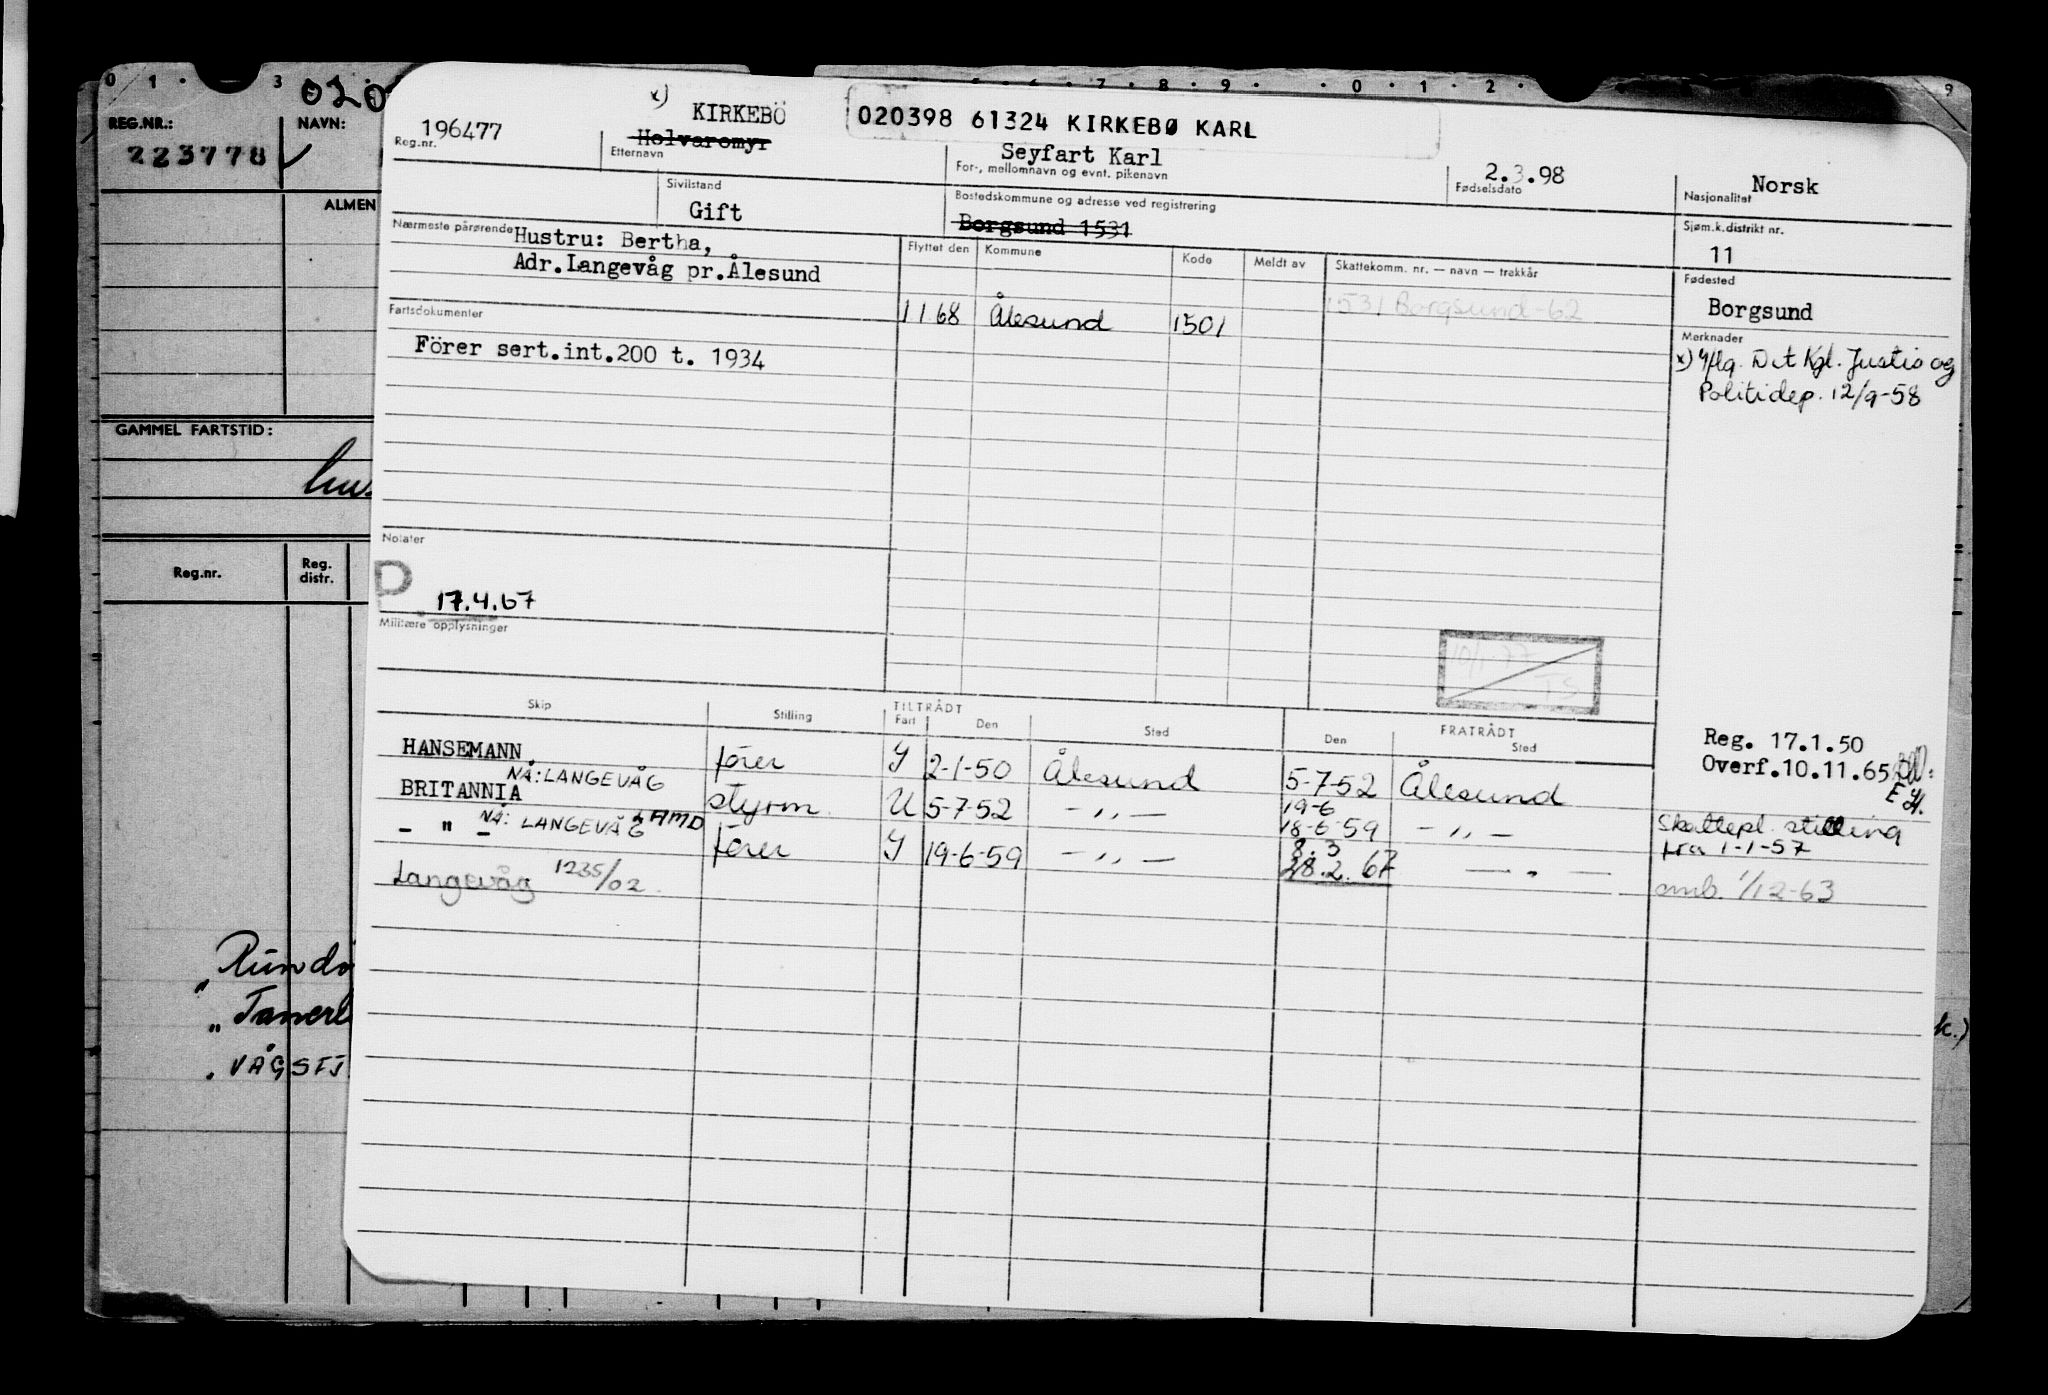 REG.NR.:
223778
NAVN:
ALMEN
GAMMEL FARTSTID:
Reg.nr.
Reg. distr.
VÅGSFJ
k.)
x)
196477
Reg.nr.
KIRKEBÖ
Holvaromyr
Etternavn
020398 61324 KIRKEBØ KARL
Seyfart Karl
For-, mellomnavn og evnt. pikenavn
2.3.98
Fødselsdato
Norsk
Nasjonalitet
Sivilstand
Gift
Bostedskommune og adresse ved registrering
Borgsund 1531
Sjøm.k.distrikt nr.
11
Nærmeste pårørende
Hustru: Bertha,
Adr.Langevåg pr.Ålesund
Flyttet den
Kommune
Kode
Meldt av
Skattekomm. nr. — navn — trekkår
1.1.68 Ålesund 1501
1531 Borgsund-62
Fødested
Borgsund
Fartsdokumenter
Förer sert.int.200 t. 1934
Merknader
x) iflg. Det Kgl. Justis og
Politidep. 12/9-58
Notater
P
17.4.67
Militære opplysninger
10/1-77
TS
Skip
Stilling
TILTRÅDT
Fart
Den
Sted
FRATRÅDT
Den
Sted
Reg. 17.1.50
Overf.10.11.65
HANSEMANN fører Y 2-1-50 Ålesund 5-7-52 Ålesund
NÅ: LANGEVÅG
BRITANNIA styrm. U 5-7-52 — " — 19-6
18-6-59 — " —
Skattepl. stilling
fra 1-1-57
NÅ: LANGEVÅG
— " — fører Y 19-6-59 — " — 8.3
28.2.67 — " —
omb. 1/12-63
Langevåg 1235/02.